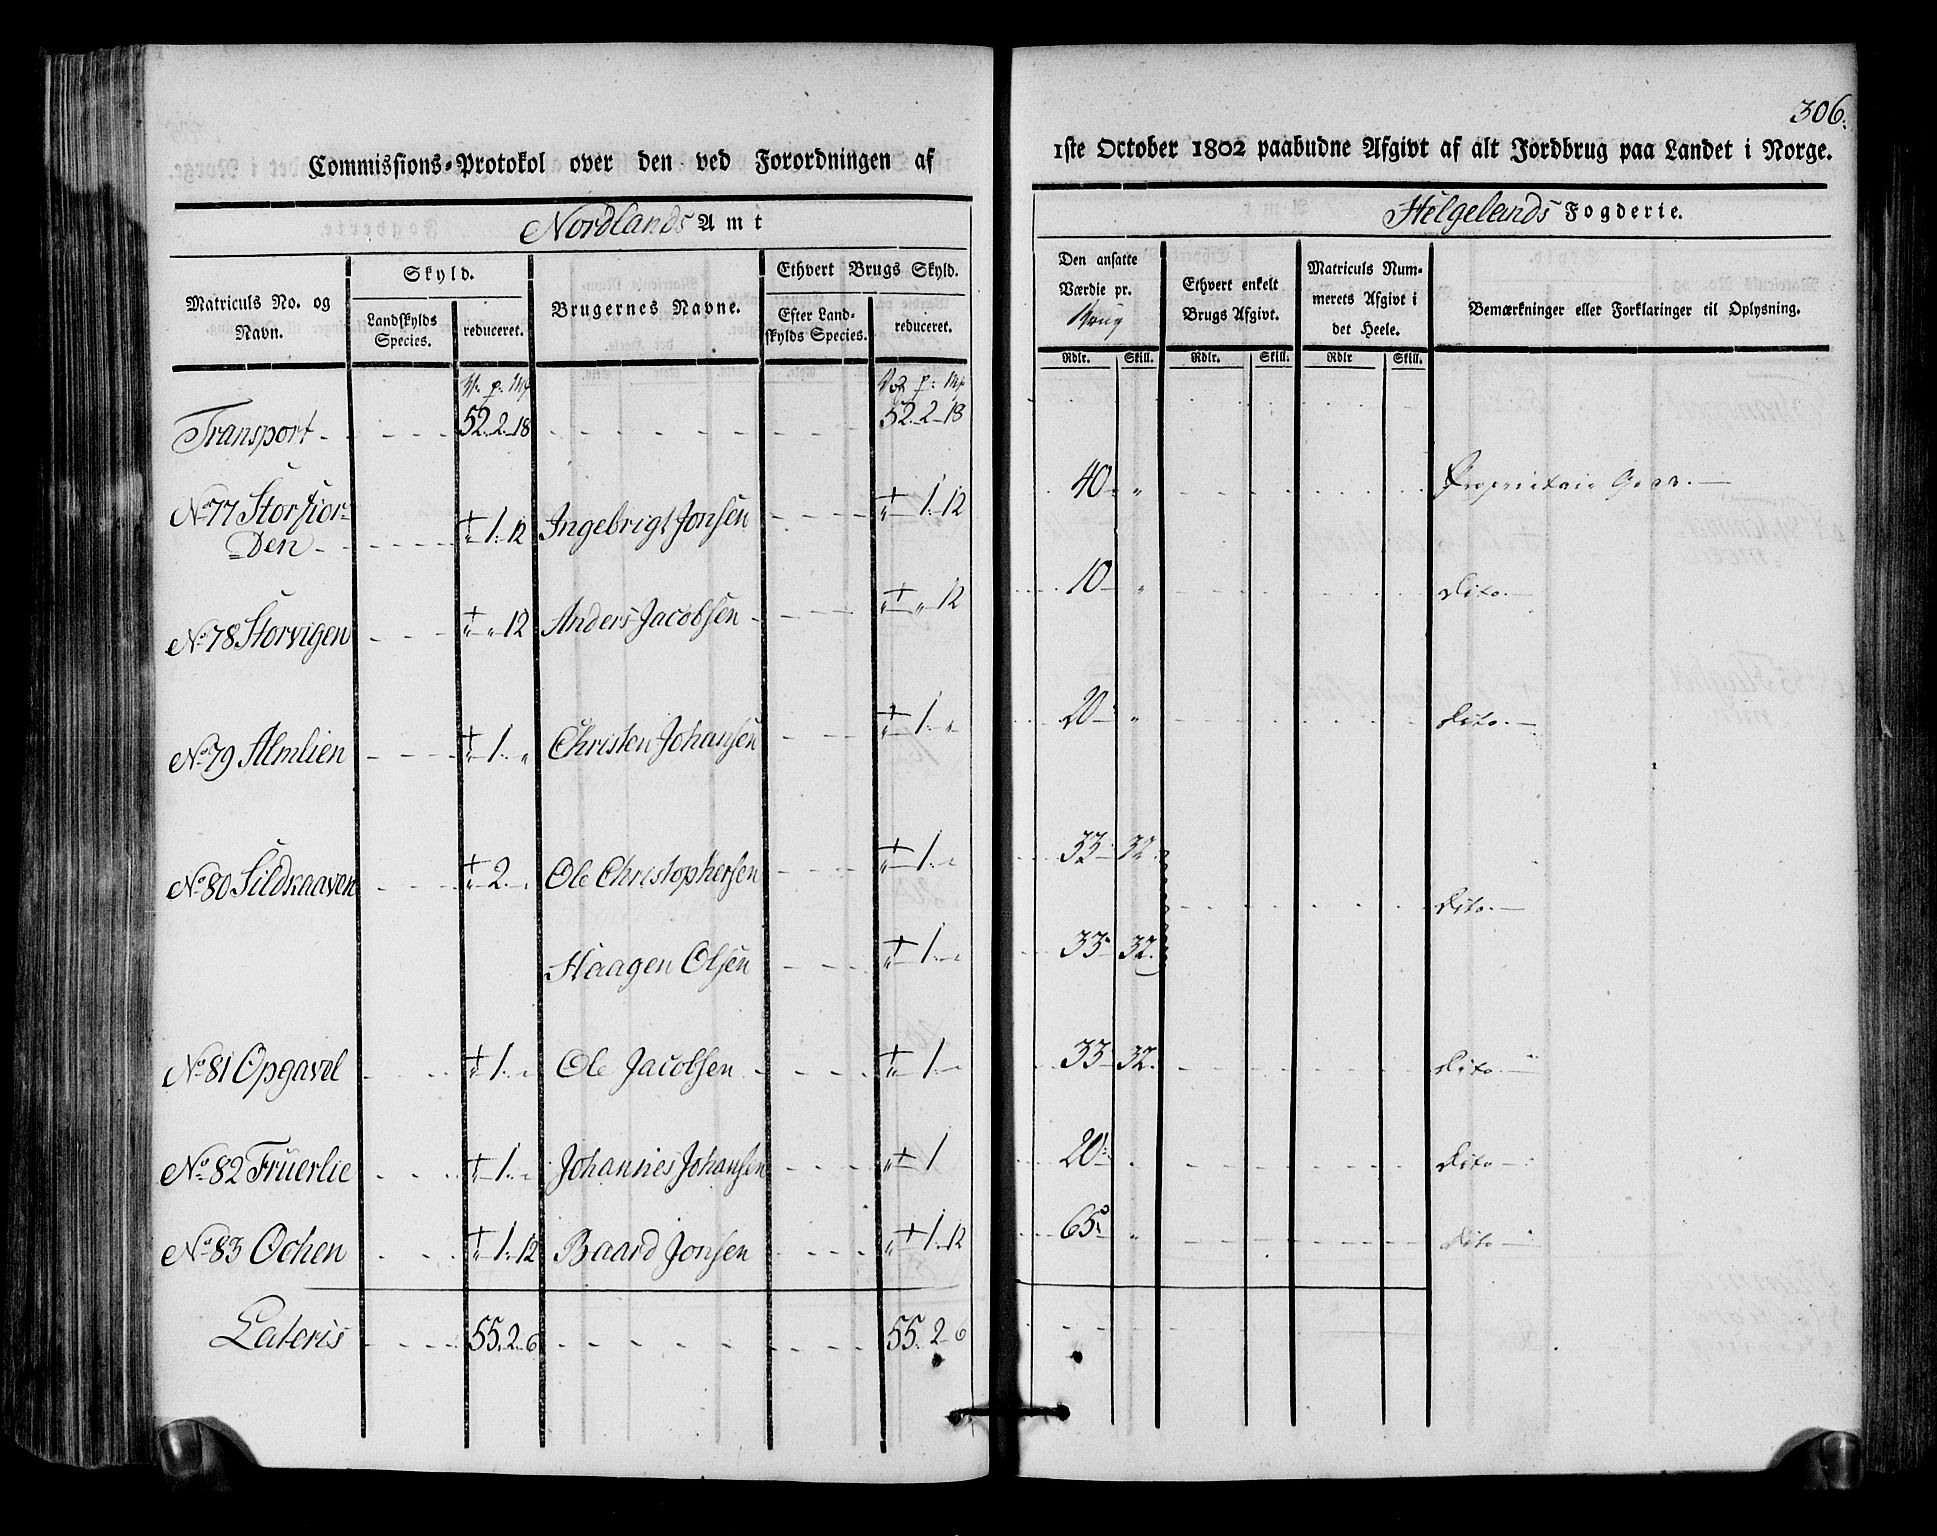 306.
Commissions-Protokol over den ved Forordningen af
1ste October 1802 paabudne Afgivt af alt Jordbrug paa Landet i Norge.
Nordlands Amt
Helgelands Fogderie.
Matriculs No. og Navn.
Skyld.
Landskylds Species.
reduceret.
Brugernes Navne.
Ethvert Brugs Skyld.
Efter Landskylds Species.
reduceret.
Den ansatte Værdie pr. Brug
Rdlr. Skill.
Ethvert enkelt Brugs Afgivt.
Rdlr. Skill.
Matriculs Nummerets Afgivt i det Heele.
Rdlr Skill.
Bemærkninger eller Forklaringer til Oplysning.
V. p: Mk
Vog p: Mk
Transport 52. 2. 18 52. 2. 18
No 77 Storfior=
=den " 1. 12 Ingebrigt Jonsen " 1. 12 40 " Proprietair Gods.
No 78 Storvigen " " 12 Anders Jacobsen " " 12 10 " Dito.
No 79 Almlien " 1. " Christen Johansen " 1. " 20 " Dito.
No 80 Sildhaaven " 2. " Ole Christophersen " 1. " 33 32.
Dito.
Haagen Olsen " 1. " 33 32.
No 81 Opgavel " 1. " Ole Jacobsen " 1. " 33 32. Dito.
No 82 Fruerlie " 1. " Johannes Johansen " 1 20 . Dito
No 83 Ochen " 1. 12 Baard Jonsen " 1. 12 65 " Dito
Lateris 55. 2. 6 55. 2 6